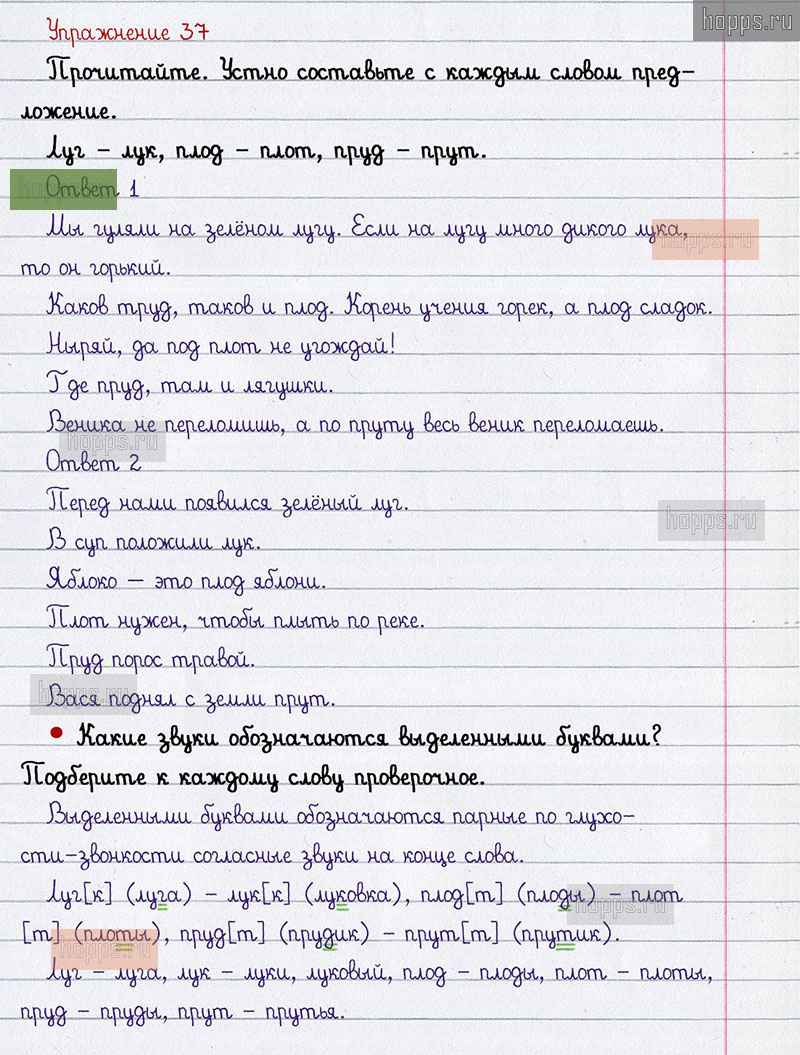 hopps.ru
Упражнение 37
Прочитайте. Устно составьте с каждым словом пред-
ложение.
Луг – лук, плод – плот, пруд – прут.
Ответ 1
Мы гуляли на зелёном лугу. Если на лугу много дикого лука,
hopps.ru
то он горький.
Каков труд, таков и плод. Корень учения горек, а плод сладок.
Ныряй, да под плот не угождай!
Где пруд, там и лягушки.
Веника не переломишь, а по пруту весь веник переломаешь.
hopps.ru
Ответ 2
Перед нами появился зелёный луг.
hopps.ru
В суп положили лук.
Яблоко – это плод яблони.
Плот нужен, чтобы плыть по реке.
Пруд порос травой.
hopps.ru
Вася поднял с земли прут.
• Какие звуки обозначаются выделенными буквами?
Подберите к каждому слову проверочное.
Выделенными буквами обозначаются парные по глухо-
сти-звонкости согласные звуки на конце слова.
Луг[к] (луга) – лук[к] (луковка), плод[т] (плоды) – плот
hopps.ru
[т] (плоты), пруд[т] (прудик) – прут[т] (прутик).
hopps.ru
Луг – луга, лук – луки, луковый, плод – плоды, плот – плоты,
пруд – пруды, прут – прутья.